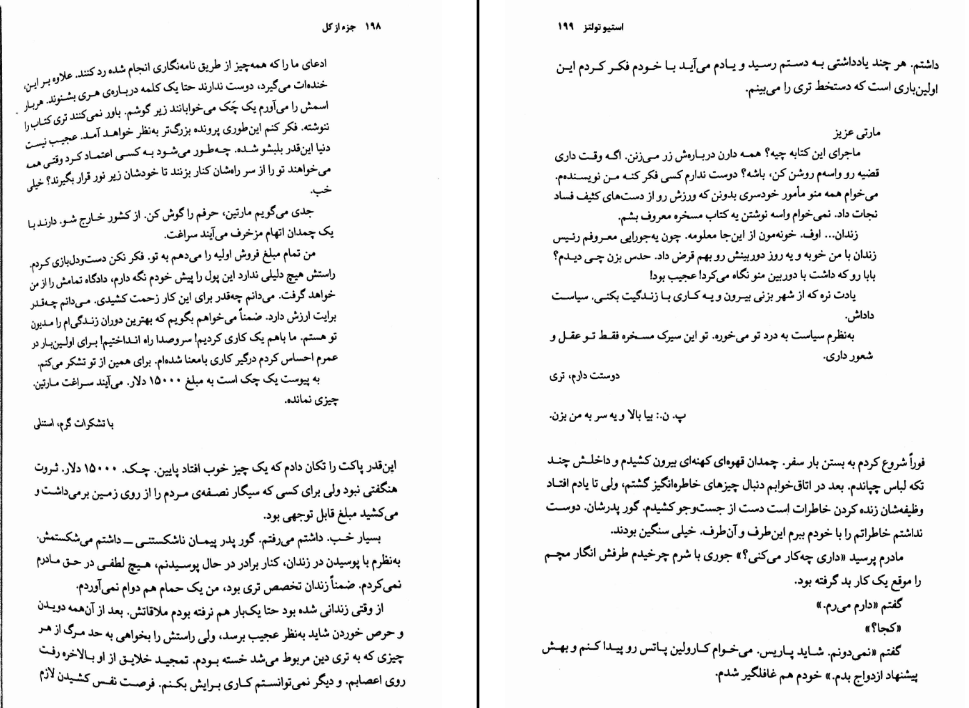 ۱۹۸ جزء از کل
ادعای ما را که همه‌چیز از طریق نامه‌نگاری انجام شده رد کنند. علاوه بر این،
خنده‌ات می‌گیرد، دوست ندارند حتا یک کلمه درباره‌ی هری بشنوند. هربار
اسمش را می‌آورم یک چَک می‌خوابانند زیر گوشم. باور نمی‌کنند تری کتاب را
ننوشته. فکر کنم این‌طوری پرونده بزرگ‌تر به‌نظر خواهد آمد. عجیب نیست
دنیا این‌قدر بلبشو شده. چه‌طور می‌شود به کسی اعتماد کرد وقتی همه
می‌خواهند تو را از سر راه‌شان کنار بزنند تا خودشان زیر نور قرار بگیرند؟ خیلی
خب.
جدی می‌گویم مارتین، حرفم را گوش کن. از کشور خارج شو. دارند با
یک چمدان اتهام مزخرف می‌آیند سراغت.
من تمام مبلغ فروش اولیه را می‌دهم به تو. فکر نکن دست‌ودل‌بازی کردم.
راستش هیچ دلیلی ندارد این پول را پیش خودم نگه دارم، دادگاه تمامش را از من
خواهد گرفت. می‌دانم چه‌قدر برای این کار زحمت کشیدی. می‌دانم چه‌قدر
برایت ارزش دارد. ضمناً می‌خواهم بگویم که بهترین دوران زندگی‌ام را مدیون
تو هستم. ما باهم یک کاری کردیم! سروصدا راه انداختیم! برای اولین‌بار در
عمرم احساس کردم درگیر کاری بامعنا شده‌ام. برای همین از تو تشکر می‌کنم.
به پیوست یک چک است به مبلغ ۱۵۰۰۰ دلار. می‌آیند سراغت مارتین.
چیزی نمانده.
با تشکرات گرم، استنلی
این‌قدر پاکت را تکان دادم که یک چیز خوب افتاد پایین. چک. ۱۵۰۰۰ دلار. ثروت
هنگفتی نبود ولی برای کسی که سیگار نصفه‌ی مردم را از روی زمین برمی‌داشت و
می‌کشید مبلغ قابل توجهی بود.
بسیار خب. داشتم می‌رفتم. گور پدر پیمان ناشکستنی ــ داشتم می‌شکستمش.
به‌نظرم با پوسیدن در زندان، کنار برادر در حال پوسیدنم، هیچ لطفی در حق مادرم
نمی‌کردم. ضمناً زندان تخصص تری بود، من یک حمام هم دوام نمی‌آوردم.
از وقتی زندانی شده بود حتا یک‌بار هم نرفته بودم ملاقاتش. بعد از آن‌همه دویدن
و حرص خوردن شاید به‌نظر عجیب برسد، ولی راستش را بخواهی به حد مرگ از هر
چیزی که به تری دین مربوط می‌شد خسته بودم. تمجید خلایق از او بالاخره رفت
روی اعصابم. و دیگر نمی‌توانستم کاری برایش بکنم. فرصت نفس کشیدن لازم
استیو تولتز ۱۹۹
داشتم. هر چند یادداشتی به دستم رسید و یادم می‌آید با خودم فکر کردم این
اولین‌باری است که دستخط تری را می‌بینم.
مارتی عزیز
ماجرای این کتابه چیه؟ همه دارن درباره‌ش زر می‌زنن. اگه وقت داری
قضیه رو واسه‌م روشن کن، باشه؟ دوست ندارم کسی فکر کنه من نویسنده‌م.
می‌خوام همه منو مأمور خودسری بدونن که ورزش رو از دست‌های کثیف فساد
نجات داد. نمی‌خوام واسه نوشتن یه کتاب مسخره معروف بشم.
زندان... اوف. خونه‌مون از این‌جا معلومه. چون یه‌جورایی معروفم رئیس
زندان با من خوبه و یه روز دوربینش رو بهم قرض داد. حدس بزن چی دیدم؟
بابا رو که داشت با دوربین منو نگاه می‌کرد! عجیب بود!
یادت نره که از شهر بزنی بیرون و یه کاری با زندگیت بکنی. سیاست
داداش.
به‌نظرم سیاست به درد تو می‌خوره. تو این سیرک مسخره فقط تو عقل و
شعور داری.
دوستت دارم، تری
پ. ن.: بیا بالا و یه سر به من بزن.
فوراً شروع کردم به بستن بار سفر. چمدان قهوه‌ای کهنه‌ای بیرون کشیدم و داخلش چند
تکه لباس چپاندم. بعد در اتاق‌خوابم دنبال چیزهای خاطره‌انگیز گشتم، ولی تا یادم افتاد
وظیفه‌شان زنده کردن خاطرات است دست از جست‌وجو کشیدم. گور پدرشان. دوست
نداشتم خاطراتم را با خودم ببرم این‌طرف و آن‌طرف. خیلی سنگین بودند.
مادرم پرسید «داری چه‌کار می‌کنی؟» جوری با شرم چرخیدم طرفش انگار مچم
را موقع یک کار بد گرفته بود.
گفتم «دارم می‌رم.»
«کجا؟»
گفتم «نمی‌دونم. شاید پاریس. می‌خوام کارولین پاتس رو پیدا کنم و بهش
پیشنهاد ازدواج بدم.» خودم هم غافلگیر شدم.